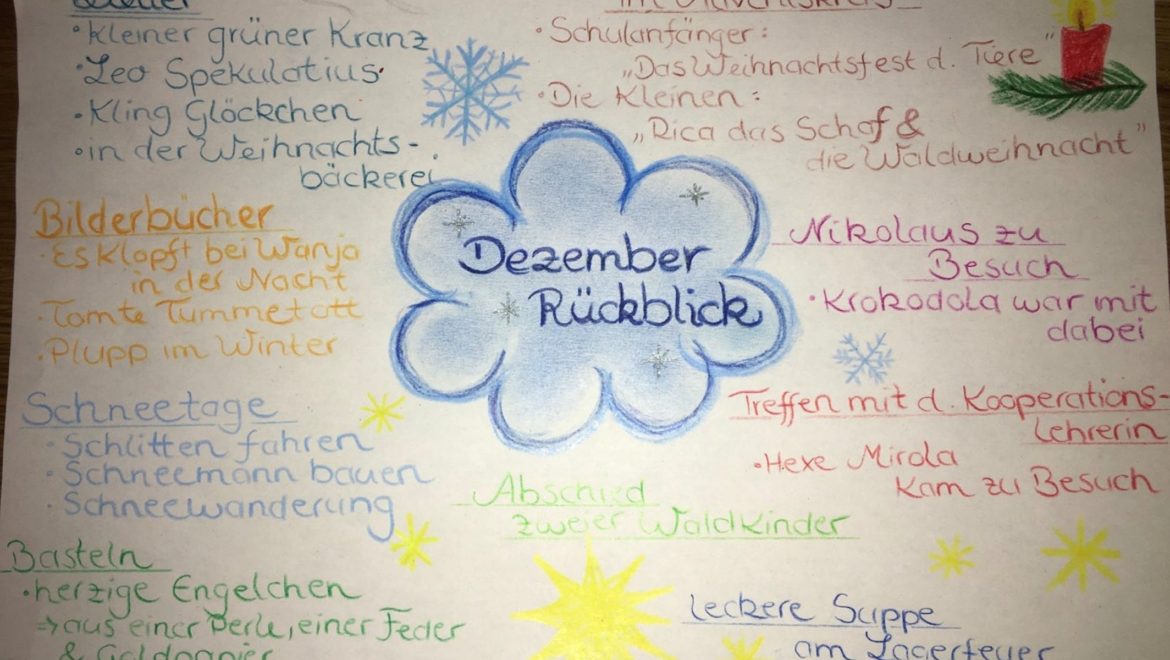 Lieder
• Kleiner grüner Kranz
• Leo Spekulatius
• Kling Glöckchen
• in der Weihnachts-
bäckerei
Bilderbücher
• Es klopft bei Wanja
in der Nacht
• Tomte Tummetott
• Plupp im Winter
Schneetage
• Schlitten fahren
• Schneemann bauen
• Schneewanderung
Basteln
• herzige Engelchen
⇒ aus einer Perle, einer Feder
& Goldpapier
Dezember
Rückblick
Abschied
zweier Waldkinder
im Adventskreis
• Schulanfänger:
„Das Weihnachtsfest d. Tiere"
• Die Kleinen:
„Rica das Schaf &
die Waldweihnacht"
Nikolaus zu
Besuch
• Krokodola war mit
dabei
Treffen mit d. Kooperations-
lehrerin
• Hexe Mirola
kam zu Besuch
leckere Suppe
am Lagerfeuer